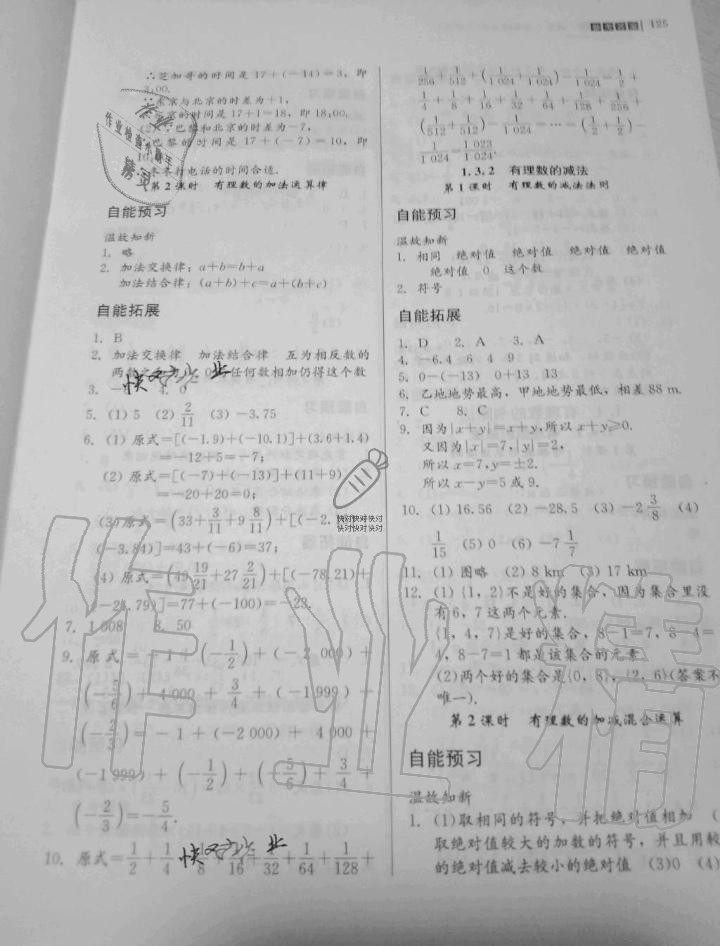 125
∴芝加哥的时间是 17+(-14)=3，即
3:00.
∴东京与北京的时差为+1，
的时间是 17+1=18，即 18:00.
(2)∵巴黎和北京的时差为-7，
∴巴黎的时间是 17+(-7)=10，即
10
∴冬冬打电话的时间合适.
第2课时 有理数的加法运算律
自能预习
温故知新
1. 略
2. 加法交换律：a+b=b+a
加法结合律：(a+b)+c=a+(b+c)
自能拓展
1. B
2. 加法交换律 加法结合律 互为相反数的
两数之 任何数相加仍得这个数
快对作业
3. 4. 0
5. (1) 5 (2) 2/11 (3) -3.75
6. (1) 原式=[(-1.9)+(-10.1)]+(3.6+1.4)
=-12+5=-7;
(2) 原式=[(-7)+(-13)]+(11+9)
=-20+20=0;
(3) 原式=(33+3/11+9 8/11)+[(-2.
(-3.84)]=43+(-6)=37;
(4) 原式=(49 19/21+27 2/21)+[(-78.21)+
(-21.79)]=77+(-100)=-23.
7. 1 008 8. 50
9. 原式=-1+(-1/2)+(-2 000)+
(-5/6)+4 000+3/4+(-1 999)+
(-2/3)=-1+(-2 000)+4 000+
(-1 999)+(-1/2)+(-5/6)+3/4+
(-2/3)=-5/4.
10. 原式=1/2+1/4 8 16 32+1/64+1/128+
快对作业
1/256+1/512+(1/1 024+1/1 024)-1/1 024=1/2+
1/4+1/8+1/16+1/32+1/64+1/128+1/256+
(1/512+1/512)-1/1 024=…=(1/2+1/2)-
1/1 024=1 023/1 024.
1.3.2 有理数的减法
第1课时 有理数的减法法则
自能预习
温故知新
1. 相同 绝对值 绝对值 绝对值 绝对值
绝对值 0 这个数
2. 符号
自能拓展
1. D 2. A 3. A
4. -6.4 6 4 9
5. 0-(-13) 0+13 13
6. 乙地地势最高，甲地地势最低，相差 88 m.
7. C 8. C
9. 因为|x+y|=x+y,所以 x+y≥0.
又因为|x|=7,|y|=2,
所以 x=7,y=±2.
所以 x-y=5 或 9.
10. (1) 16.56 (2) -28.5 (3) -2 3/8 (4)
1/15 (5) 0 (6) -7 1/7
11. (1) 图略 (2) 8 km (3) 17 km
12. (1) {1, 2}不是好的集合，因为集合里没
有 6, 7 这两个元素.
{1, 4, 7}是好的集合，8-1=7, 8-4=
4, 8-7=1 都是该集合的元素.
(2)两个好的集合是{0, 8}, {2, 6}(答案不
唯一).
第2课时 有理数的加减混合运算
自能预习
温故知新
1. (1)取相同的符号，并把绝对值相加 (
取绝对值较大的加数的符号，并且用较
的绝对值减去较小的绝对值 (3)0 (4)
快对快对快对
快对快对快对
作业精